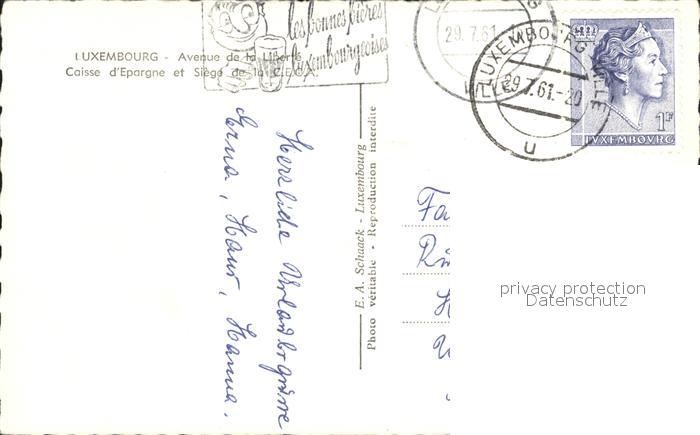 LUXEMBOURG - Avenue de la Liberté
Caisse d'Epargne et Siège de la C.E.C.A.
les bonnes bières
luxembourgeoises
29.7.61
LUXEMBOURG VILLE
29.7.61.-20
u
1F
LUXEMBOURG
Herzliche Urlaubsgrüsse
Erna, Hans, Hanna.
E. A. Schaack - Luxembourg
Photo véritable - Reproduction interdite
Fa
privacy protection
Datenschutz